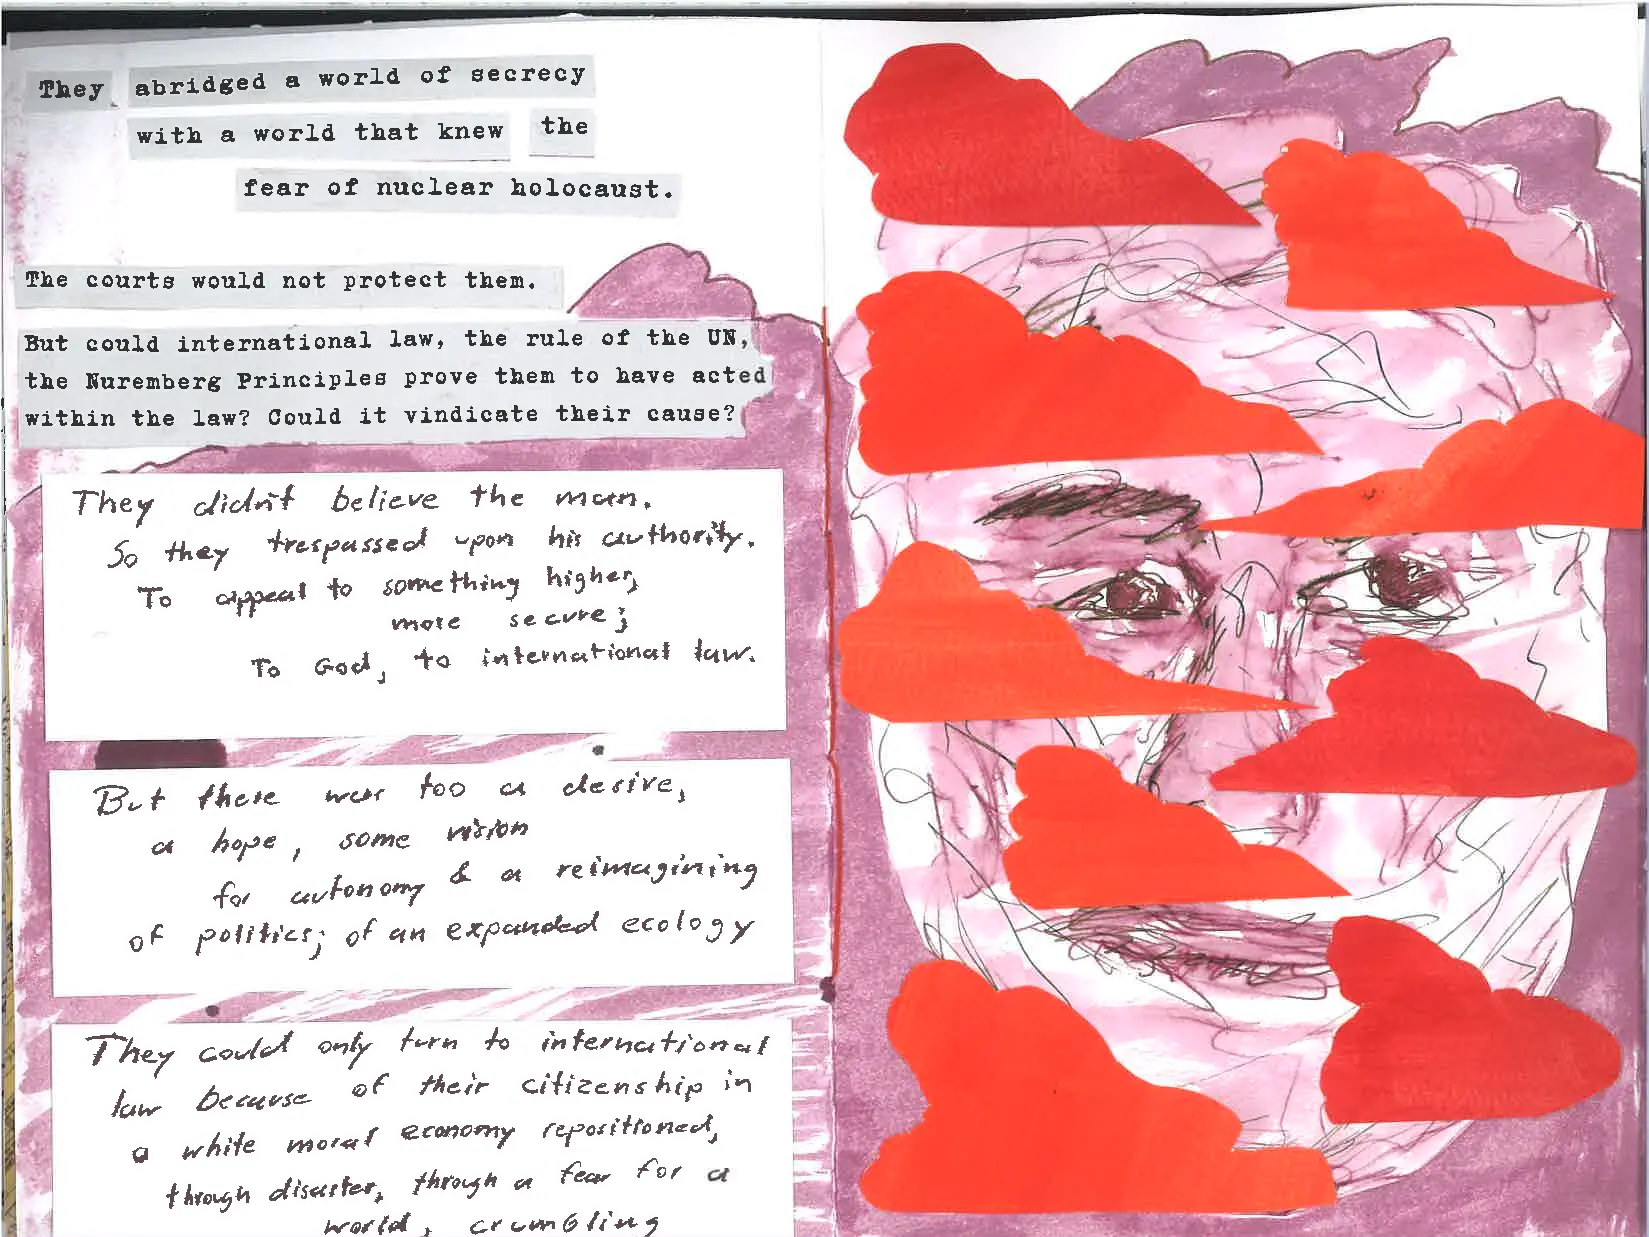 They abridged a world of secrecy
with a world that knew the
fear of nuclear holocaust.
The courts would not protect them.
But could international law, the rule of the UN,
the Nuremberg Principles prove them to have acted
within the law? Could it vindicate their cause?
They didn't believe the man.
So they trespassed upon his authority.
To appeal to something higher,
more secure;
To God, to international law.
But there was too a desire,
a hope, some vision
for autonomy & a reimagining
of politics; of an expanded ecology
They could only turn to international
law because of their citizenship in
a white moral economy repositioned,
through disaster, through a fear for a
world, crumbling